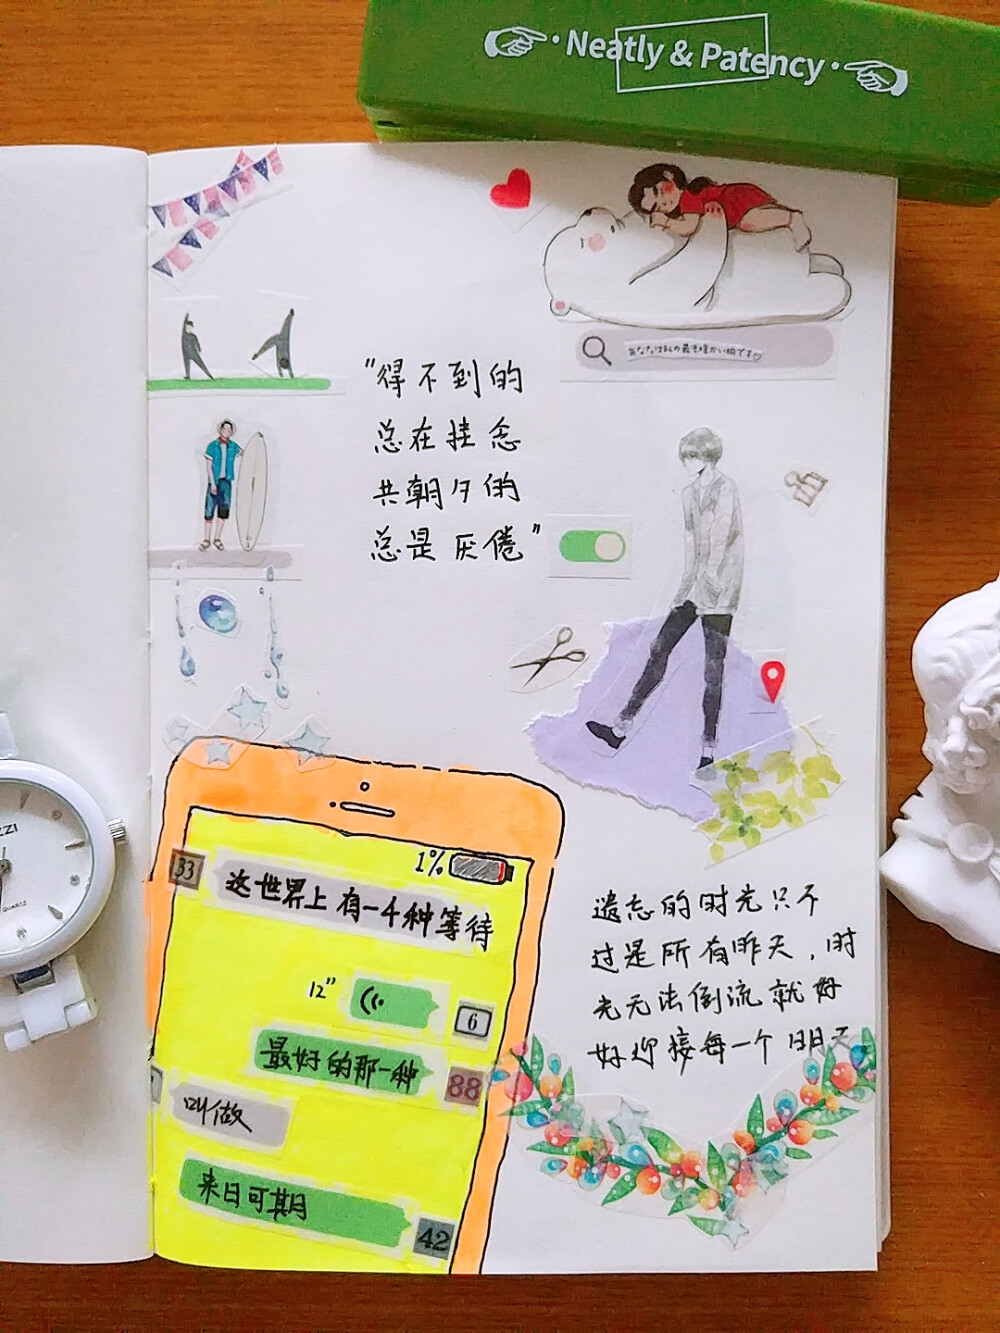 Neatly & Patency
"得不到的
总在挂念
共朝夕的
总是厌倦"
1%
33
这世界上有一个种等待
12"
6
最好的那一种
88
叫做
来日可期
42
遗忘的时光只不
过是所有昨天,时
光无法倒流就好
好迎接每一个明天
QUARTZ